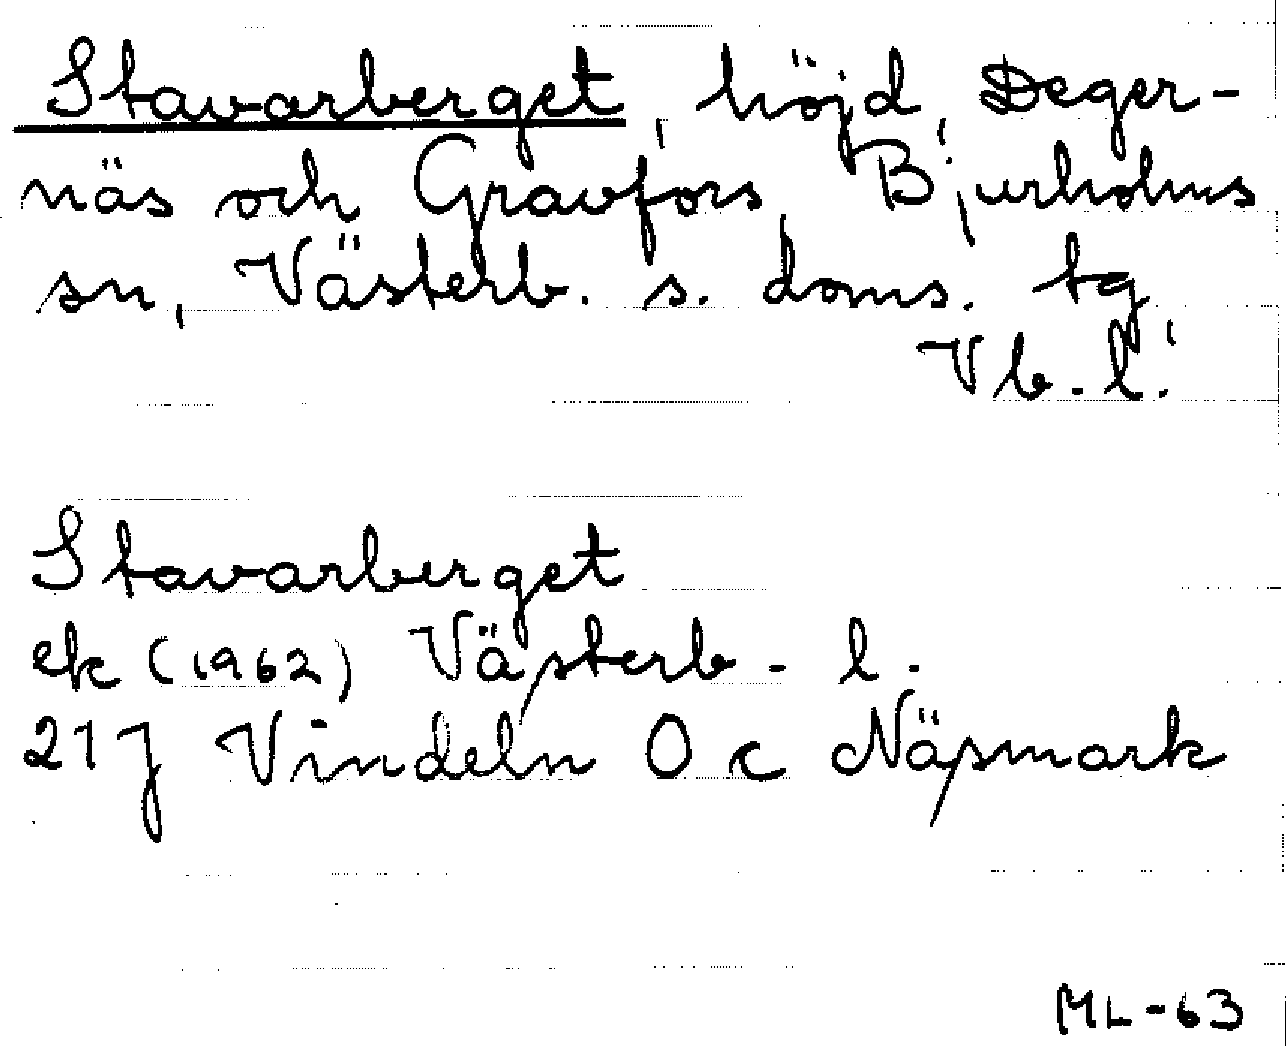 Stavarberget, höjd, Deger-
näs och Gravfors, Bjurholms
sn, Västerb. s. doms. tg,
Vb. l.
Stavarberget
ek (1962) Västerb. l.
21 J Vindeln 0 c Näsmark
ML-63